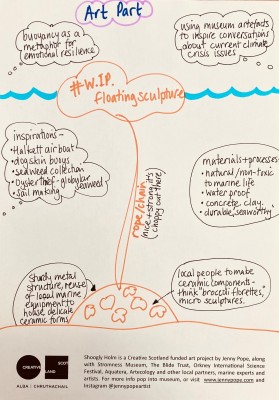 Art Part
buoyancy as a
metaphor for
emotional resilience
using museum artefacts
to inspire conversations
about current climate
crisis issues
#W.I.P.
floating sculpture
inspirations -
• Halkett air boat
• dog skin buoys
• seaweed collection
• Oyster thief - globular
seaweed
• sail making
materials + processes -
• natural / non-toxic
to marine life
• water proof
• concrete, clay.
• durable, seaworthy
rope/chain
(nice + strong, it's
choppy out there)
sturdy metal
structure, reuse
of local marine
equipment to
house delicate
ceramic forms
local people to make
ceramic components -
think 'broccoli florettes,
micro sculptures.
CREATIVE
SCOTLAND
ALBA | CHRUTHACHAIL
Shoogly Holm is a Creative Scotland funded art project by Jenny Pope, along
with Stromness Museum, The Blide Trust, Orkney International Science
Festival, Aquatera, Artecology and other local partners, marine experts and
artists. For more info pop into museum, or visit www.jennypope.com and
Instagram @jennypopeartist